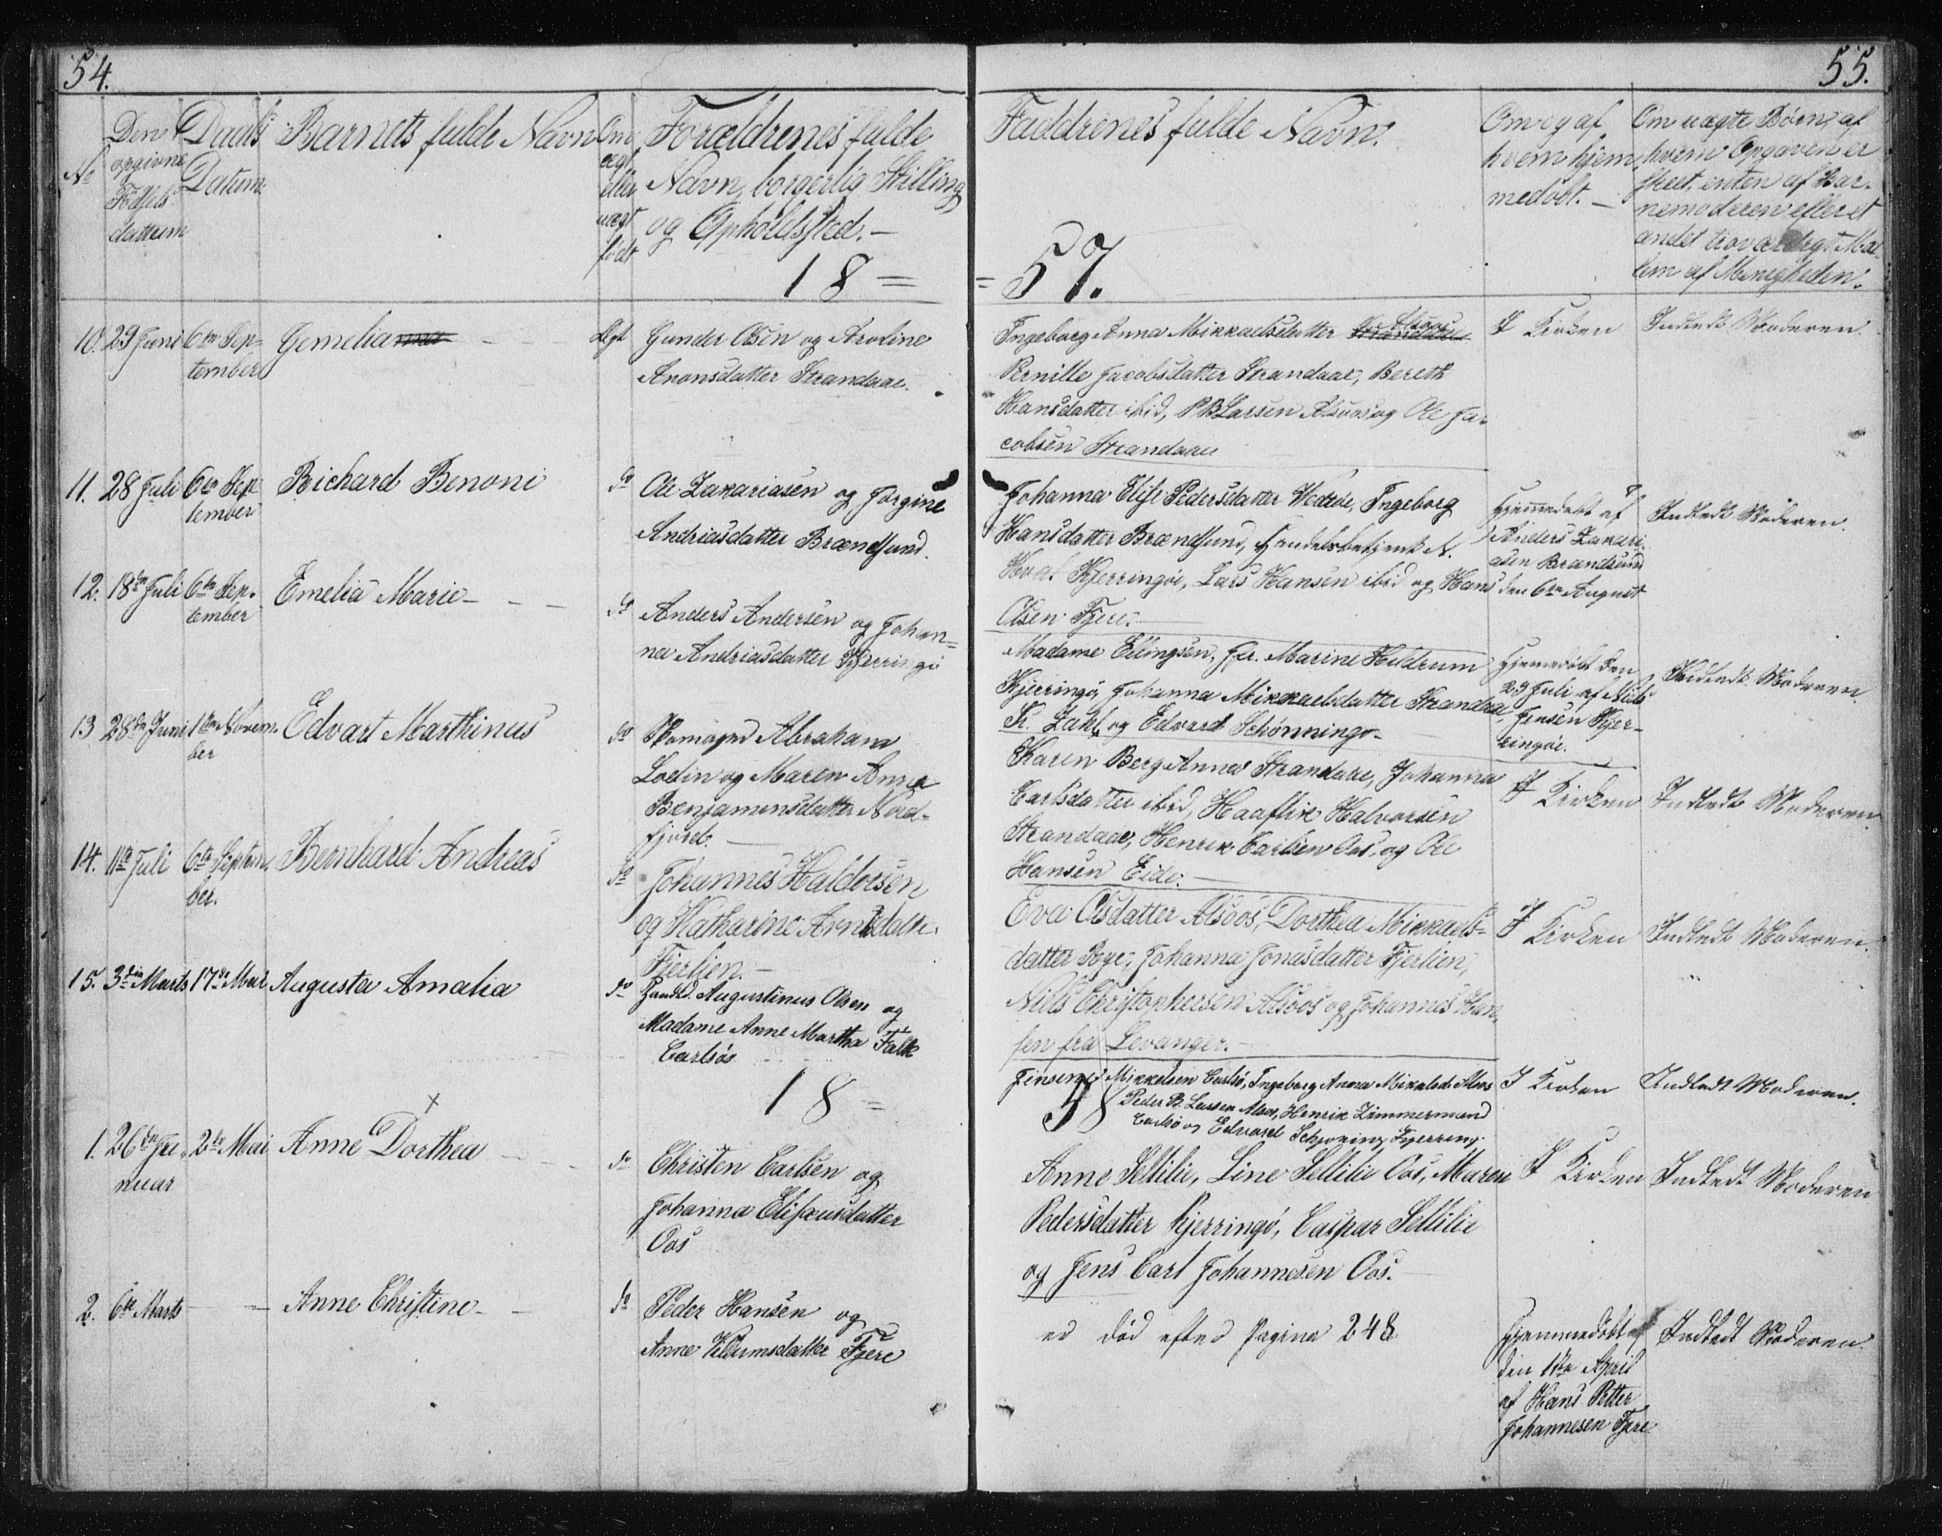 54.
55.
No
Den opgivne Fødselsdattum
Daabs Datum
Barnets fulde Navn
Om ægt eller uægt født
Forældrenes fulde
Navn, borgerlig Stilling
og Opholdssted.—
Faddrenes fulde Navn.
Om og af
hvem hjem
medøbt.—
Om uægte Børn, af
hvem Opgaven er
skeet, enten af Bar-
nemoderen eller et
andet troværdigt Mel-
lem af Menigheden.
18=
=57.
10. 29 Juni 6te Sep-
tember
Gemelia
Ægt
Gunder Olsen og Aroline
Anonsdatter Strandaae.
Ingeborg Anna Mikkaelsdatter Alsoos
Pernille Jacobsdatter Strandaae, Bereth
Hansdatter ibid, P B Larsen Alsoos og Ole Ja-
cobsen Strandaae
I Kirken
Indledt Moderen.
11. 28 Juli 6te Sep-
tember
Richard Benoni
do
Ole Zakariasen og Jørgine
Andriasdatter Brændsund.
Johanna Elise Pedersdatter Ingeborg
Hansdatter Brændsund, Handelsbetjent A.
Kjerringøe, Lars Hansen ibid og Hans
Olsen Fjere.
Hjemmedøbt af
Anders Zakari-
asen Brændsund
den 6te August
Indledt Moderen.
12. 18de Juli 6te Sep-
tember
Emelia Marie - - -
do
Anders Andersen og Johan-
ne Andriasdatter Kjerringø
Madame Ellingsen, Jfr. Marine Heldrum
Kjerringø, Johanna Mikkaelsdatter Strandaae
K. Zahl og Edvard Schønning.
Hjemedøbt den
29 Juli af Niels
Jensen Kjer-
ringøe.
Indledt Moderen.
13 28de Juni 1ste Novem-
ber
Edvart Marthinus
do
Abraham
Lodin og Maren Anna
Benjaminsdatter Nord-
fjord. —
Karen Berg Annes Strandaae, Johanna
Carlsdatter ibid, Haaflik Halvorsen
Strandaae, Henrik Carlsen Oos, og Ole
Hansen Eide.
I Kirken
Indledt Moderen.
14. 11te Juli 6te Septem-
ber.
Bernhard Andreas
do
Johannes Haldorsen
og Katharine Arntsdatter
Fjerlien.—
Eva Olsdatter Alsoos, Dorthea Mikkaels-
datter Johanna Jonasdatter Fjerlien,
Nills Christophersen Alsoos og Johannes Han-
sen fra Levanger.—
I Kirken
Indledt Moderen.
15. 3die Marts 17de Mai
Augusta Amalia
do
Handl. Augustinus Olsen og
Madame Anne Martha Falk
Carlsøe
Mikkelsen Carlsø, Ingeborg Anna Mikalsd. Alsos
Peder B. Larsen Alsos, Henrik Zimmermand
Carlsø og Edvard Schjøning Kjerring.
I Kirken
Indledt Moderen.
18=
58
1. 26de Ja-
nuar
2de Mai
x
Anne Dorthea - - -
do
Christen Carlsen og
Johanna Elisæusdatter
Oos
Anne Sellilie, Line Sellilie Oos, Maren
Pedersdatter Kjerringø, Caspar Sellilie
og Jens Carl Johannesen Oos.
I Kirken
Indledt Moderen
2. 6te Marts — —
Anne Christine—
do
Peder Hansen og
Anne Villumsdatter Fjere
er død efter Pagina 248.
Hjemmedøbt
den 11te April
af Hans Petter
Johannesen Fjere
Indledt Moderen.